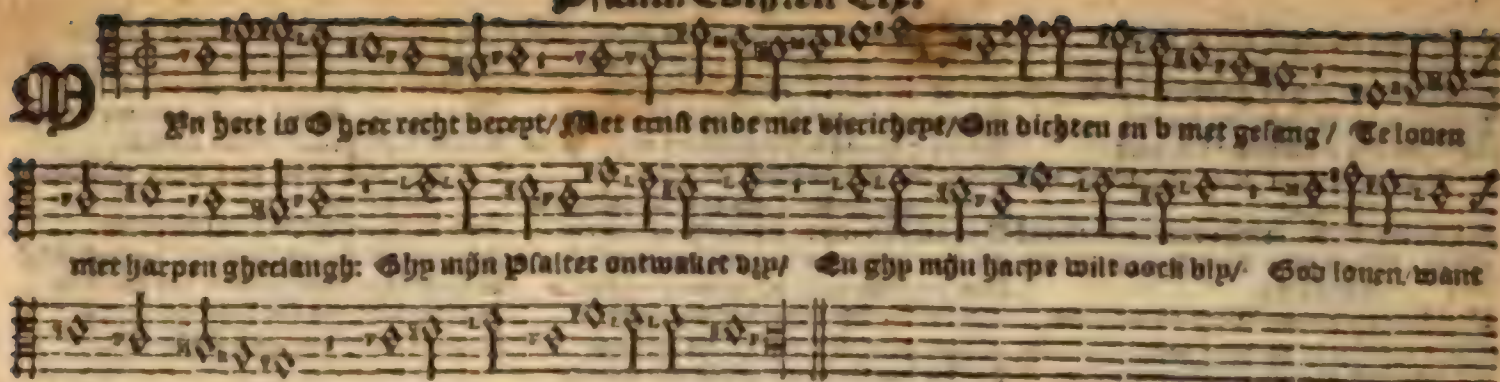 MYn hert is O heer recht bereyt/ Met ernst ende met viericheyt/ Om dichten en v met gesang/ Te louen
met harpen gheclangh: Ghy mijn Psalter ontwaket vry/ En ghy mijn harpe wilt oock bly/ God louen, want